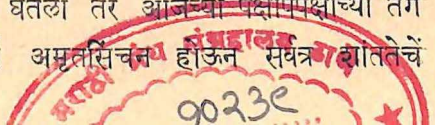 घेतला तर आजच्या पक्षोपपक्षांच्या तंग
अमृतसिंचन होऊन सर्वत्र शांततेचें
मराठी ग्रंथ संग्रहालय
१०२३९